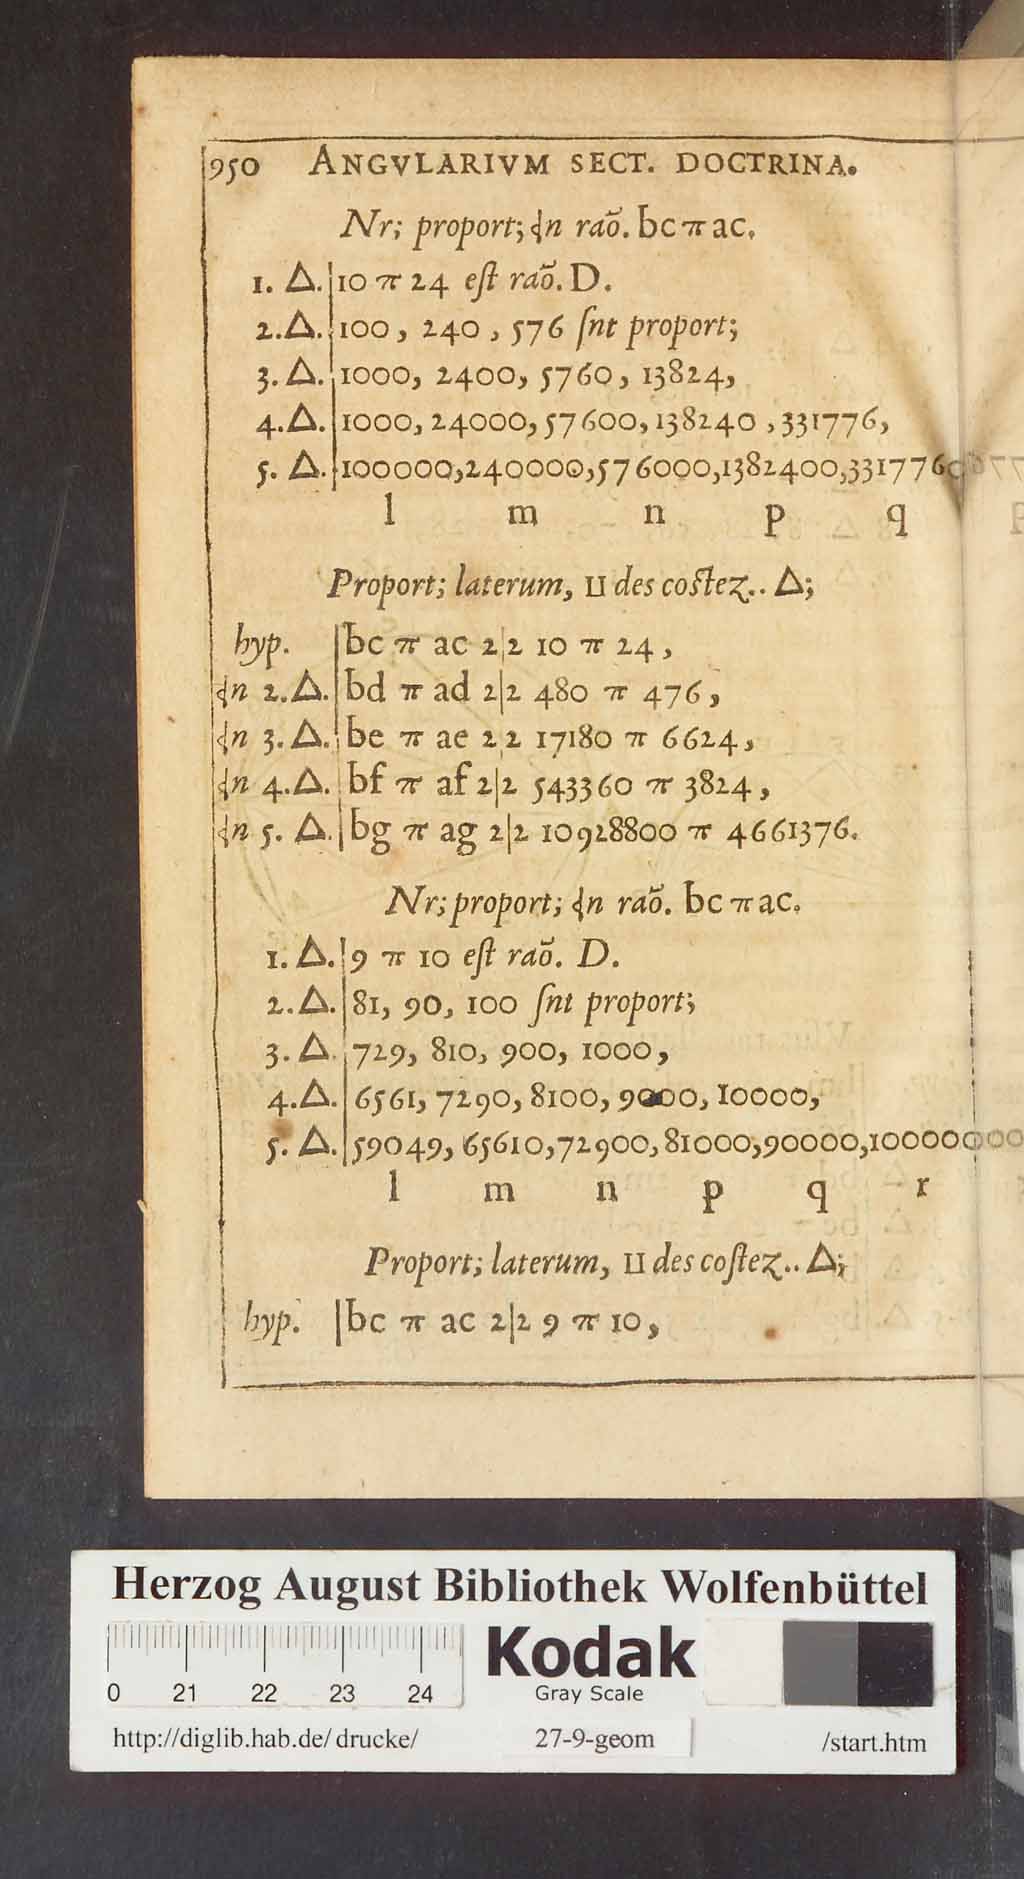 950 ANGVLARIVM SECT. DOCTRINA.
Nr; proport; ⦠n raõ. bc π ac.
1. △. | 10 π 24 eſt raõ. D.
2. △. | 100, 240, 576 ſnt proport;
3. △. | 1000, 2400, 5760, 13824,
4. △. | 1000, 24000, 57600, 138240, 331776,
5. △. | 100000, 240000, 576000, 1382400, 331776
l m n p q
Proport; laterum, ⊔ des coſtez.. △;
hyp. | bc π ac 2|2 10 π 24,
⦠n 2. △. | bd π ad 2|2 480 π 476,
⦠n 3. △. | be π ae 2|2 17180 π 6624,
⦠n 4. △. | bf π af 2|2 543360 π 3824,
⦠n 5. △. | bg π ag 2|2 10928800 π 4661376.
Nr; proport; ⦠n raõ. bc π ac.
1. △. | 9 π 10 eſt raõ. D.
2. △. | 81, 90, 100 ſnt proport;
3. △. | 729, 810, 900, 1000,
4. △. | 6561, 7290, 8100, 9000, 10000,
5. △. | 59049, 65610, 72900, 81000, 90000, 100000
l m n p q r
Proport; laterum, ⊔ des coſtez.. △;
hyp. | bc π ac 2|2 9 π 10,
Herzog August Bibliothek Wolfenbüttel
0 21 22 23 24
Kodak
Gray Scale
http://diglib.hab.de/drucke/ 27-9-geom /start.htm